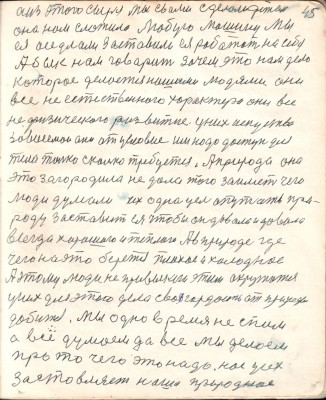 45
аиз этого сырья мы стали сделом детал
она нам служила любую машину мы
ея оседлали заставили ея работат на себя
А Баик нам говорит зачем это нам дело
которое делается нашими людями они
все не естественного характера они все
не физическое развитие у них искуство
зависемо они от условие им надо доступ для
тела только сколко требуется, А природа она
это загородила не дала того заимет чего
люди думали их одна цел опутать при-
роду заставит ея чтобы она давала и давала
всегда хорошого и теплого А в природе где
чего на это берется плохое и холодное
А этому люди не привлекли этим окружается
у них для этого дела своя гордость от природы
добится, Мы одно время не спим
а всё думаем да все мы делаем
про то чего это надо, нас усех
заставляет наши природное